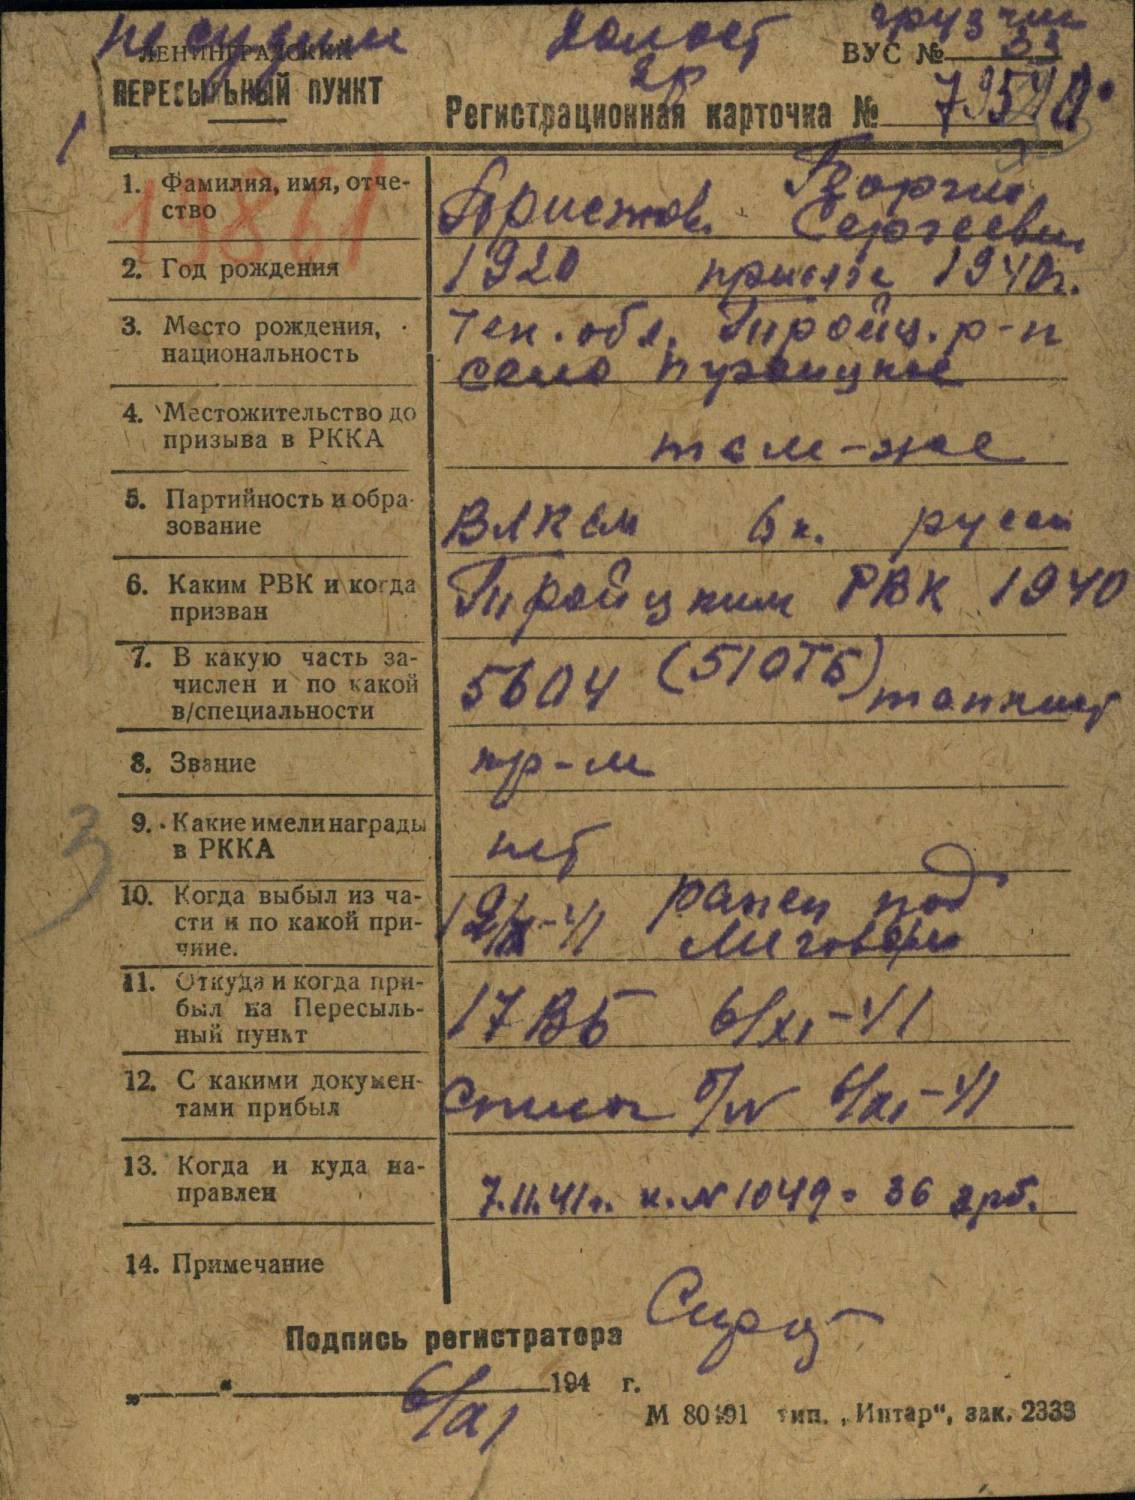 несудим холост грузчик
ЛЕНИНГРАДСКИЙ ВУС № 33
ПЕРЕСЫЛЬНЫЙ ПУНКТ 2р
Регистрационная карточка №
1
19861
1. Фамилия, имя, отче-
ство
Георгий
Сергеевич
2. Год рождения
1920 присяга 1940г.
3. Место рождения,
национальность
Тройц. р-н
село
4. Местожительство до
призыва в РККА
там-же
5. Партийность и обра-
зование
ВЛКСМ 6 к. русск
6. Каким РВК и когда
призван
Тройцким РВК 1940
7. В какую часть за-
числен и по какой
в/специальности
(51ОТБ)
танкист
8. Звание
кр-м
9. Какие имели награды
в РККА
нет
10. Когда выбыл из ча-
сти и по какой при-
чине.
-41 ранен под
Лигово
11. Откуда и когда при-
был на Пересыль-
ный пункт
17 ВБ 6/XI-41
12. С какими докумен-
тами прибыл
Список б/N 6/XI-41
13. Когда и куда на-
правлен
7.11.41г. к. № 1049 = 36
14. Примечание
3
Подпись регистратора
„ “ 194 г.
6/XI
М 80491 тип. „Интар“, зак. 2333